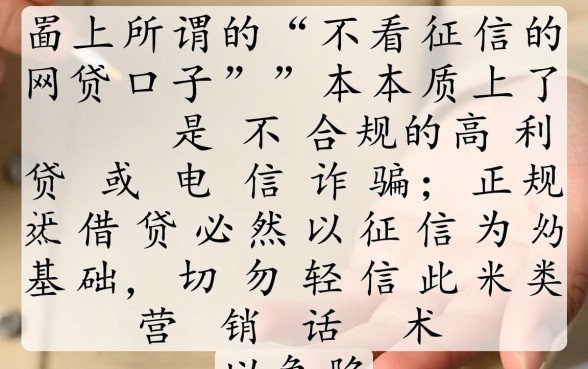 上所谓的“不看征信的
网贷口子””本本质上了
是不合规的高利
贷或电信诈骗；正规
借贷必然以征信为
基础，切勿轻信此米类
营销话术